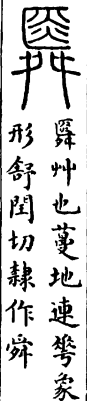 䑞
䑞艸也蔓地連華象
形舒閏切隸作舜